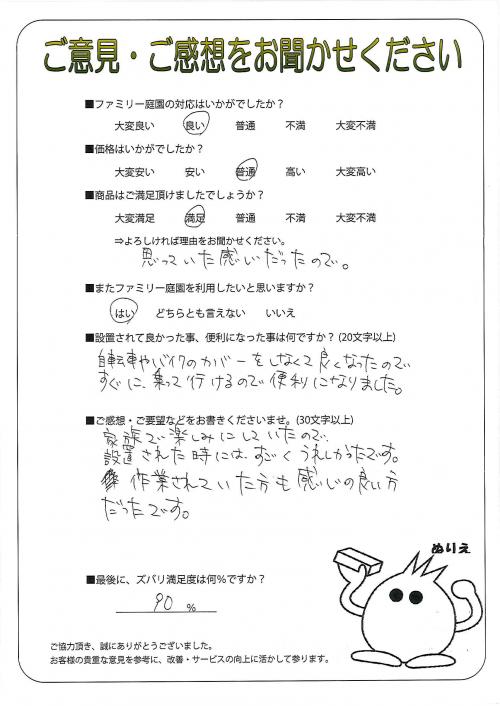 ご意見・ご感想をお聞かせください
■ファミリー庭園の対応はいかがでしたか？
大変良い 良い 普通 不満 大変不満
■価格はいかがでしたか？
大変安い 安い 普通 高い 大変高い
■商品はご満足頂けましたでしょうか？
大変満足 満足 普通 不満 大変不満
⇒よろしければ理由をお聞かせください。
思っていた感じだったので。
■またファミリー庭園を利用したいと思いますか？
はい どちらとも言えない いいえ
■設置されて良かった事、便利になった事は何ですか？(20文字以上)
自転車やバイクのカバーをしなくて良くなったので
すぐに、乗って行けるので便利になりました。
■ご感想・ご要望などをお書きくださいませ。(30文字以上)
家族で楽しみにしていたので、
設置された時には、すごくうれしかったです。
作業されていた方も感じの良い方
だったです。
ぬりえ
■最後に、ズバリ満足度は何％ですか？
90 %
ご協力頂き、誠にありがとうございました。
お客様の貴重な意見を参考に、改善・サービスの向上に活かして参ります。